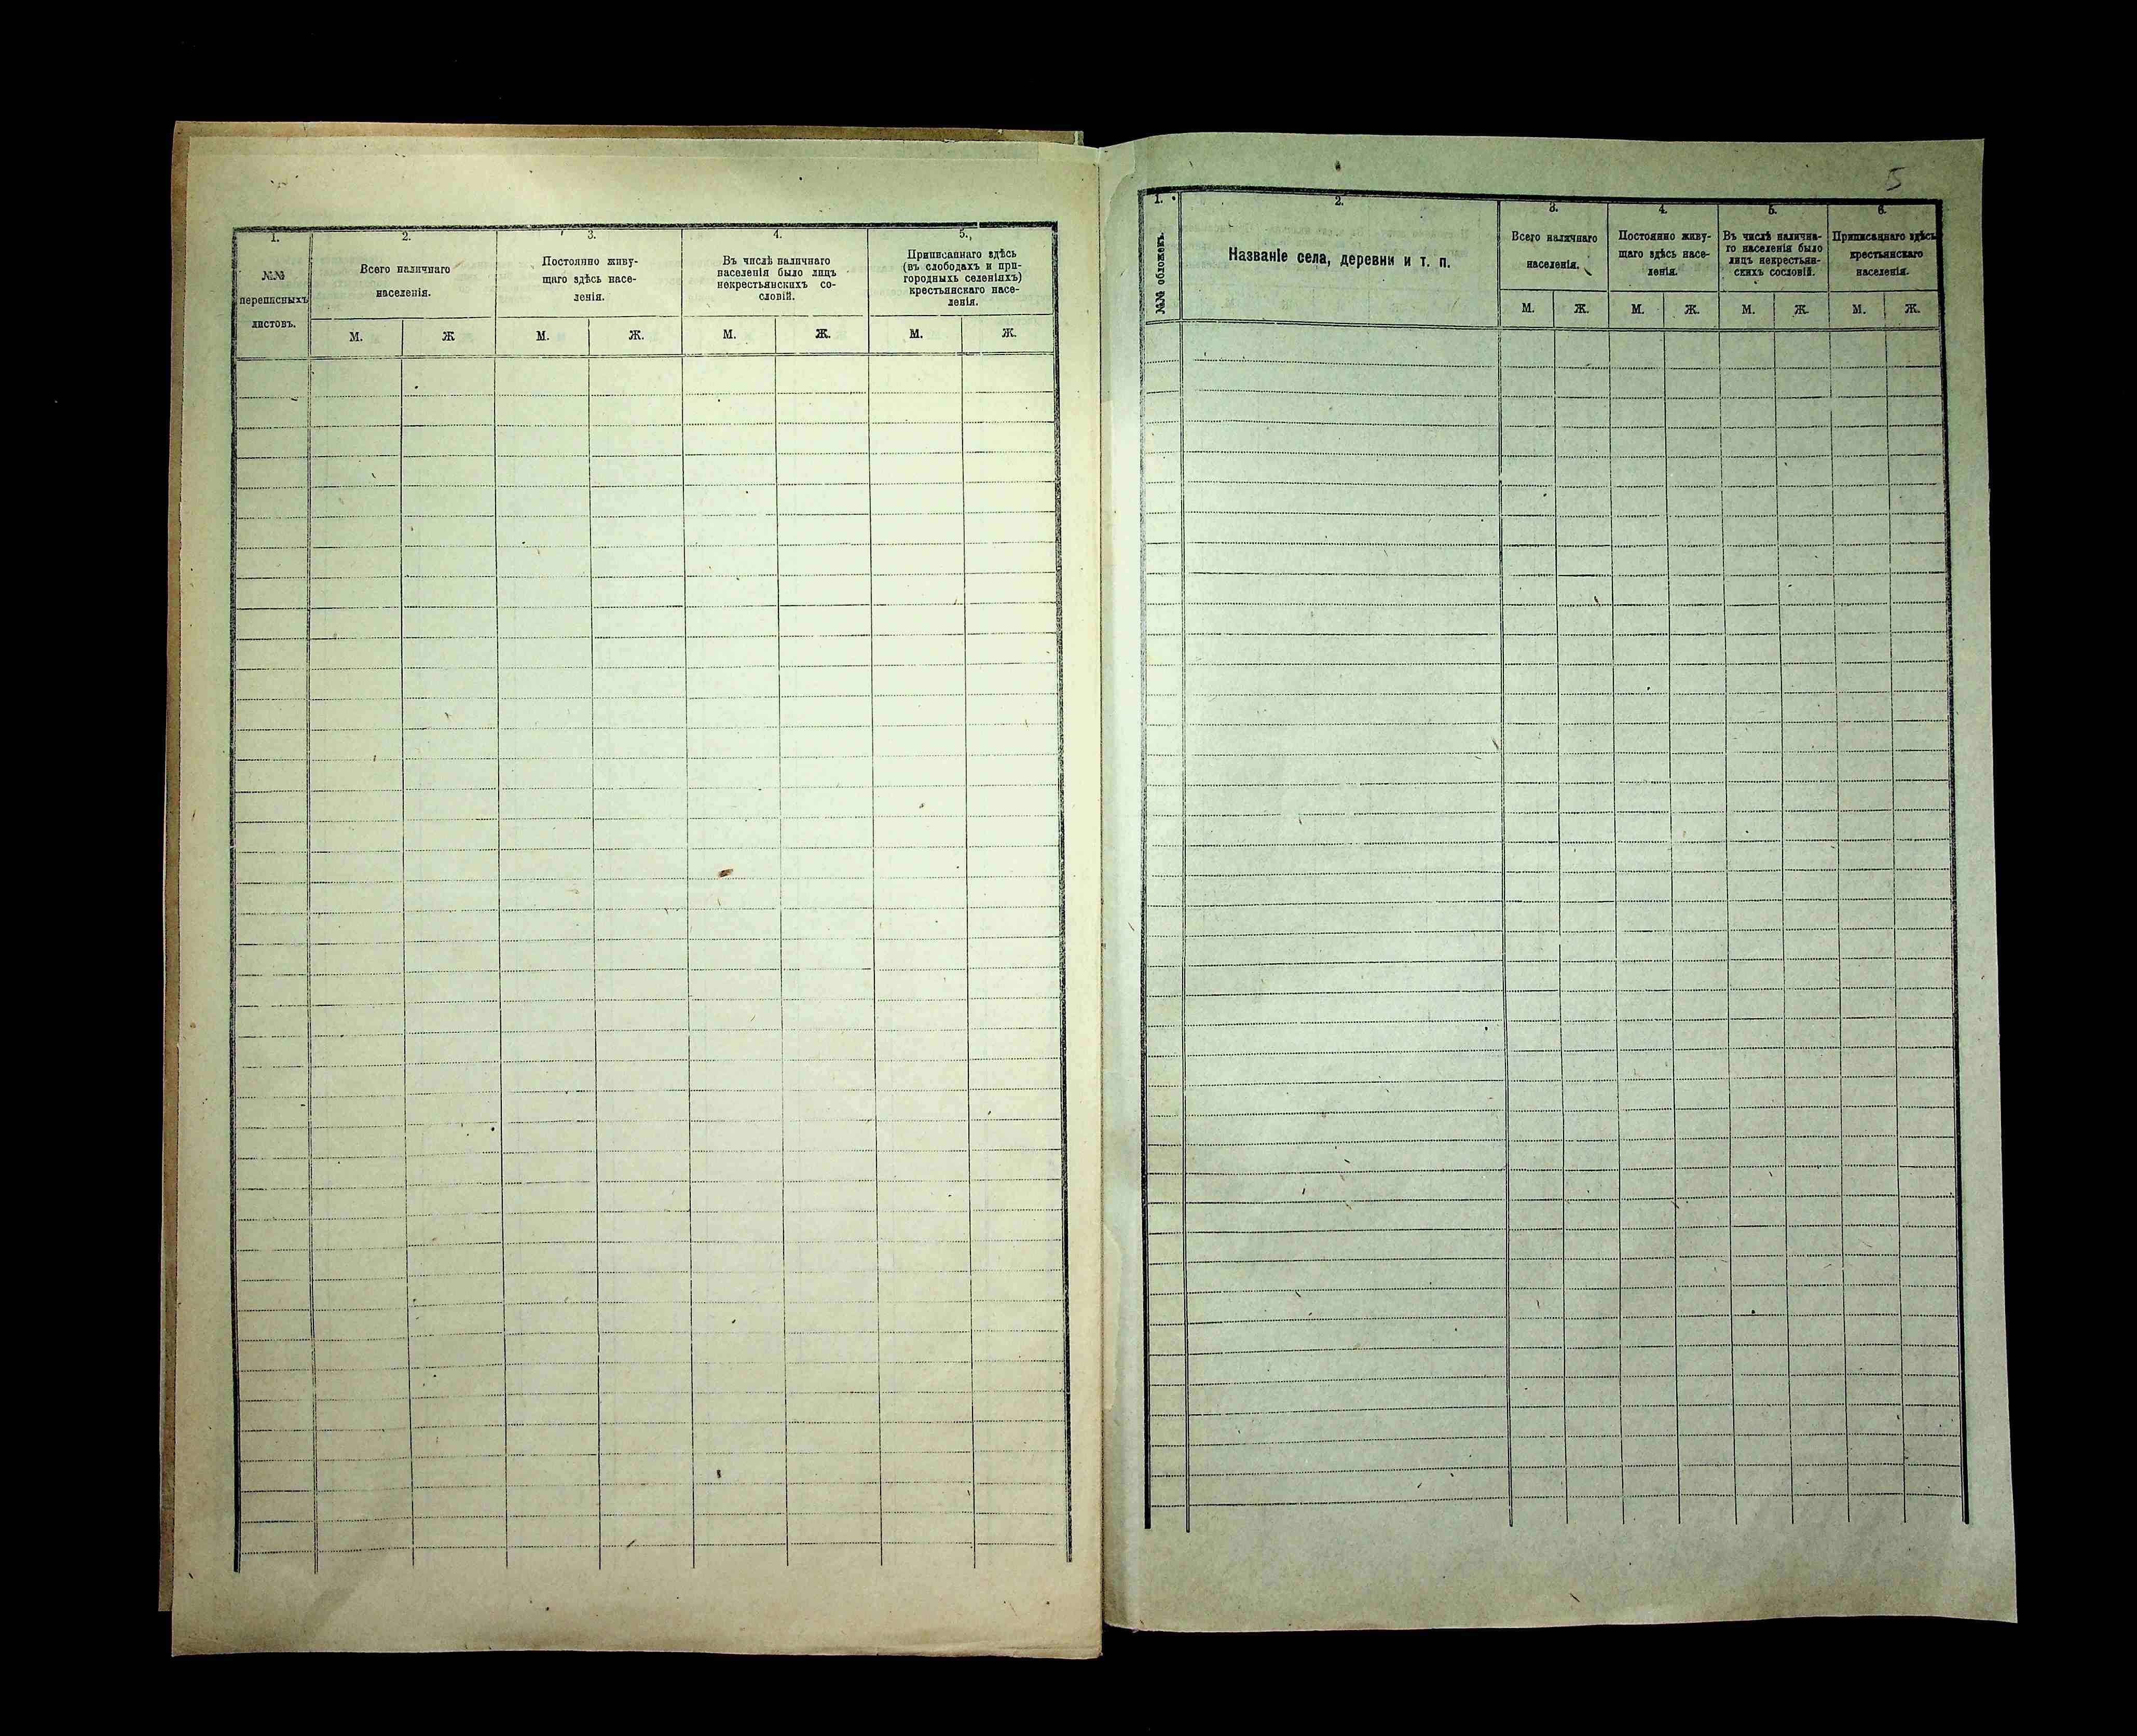 1.
2.
3.
4.
5.
№№
переписныхъ
листовъ.
Всего наличнаго
населенія.
Постоянно живу-
щаго здѣсь насе-
ленія.
Въ числѣ наличнаго
населенія было лицъ
некрестьянскихъ со-
словій.
Приписаннаго здѣсь
(въ слободахъ и при-
городныхъ селеніяхъ)
крестьянскаго насе-
ленія.
М.
Ж
М.
Ж.
М.
Ж.
М.
Ж.
5
1.
2.
3.
4.
5.
6.
№№ обложекъ.
Названіе села, деревни и т. п.
Всего наличнаго
населенія.
Постоянно живу-
щаго здѣсь насе-
ленія.
Въ числѣ налична-
го населенія было
лицъ некрестьян-
скихъ сословій.
Приписаннаго здѣсь
крестьянскаго
населенія.
М.
Ж.
М.
Ж.
М.
Ж.
М.
Ж.